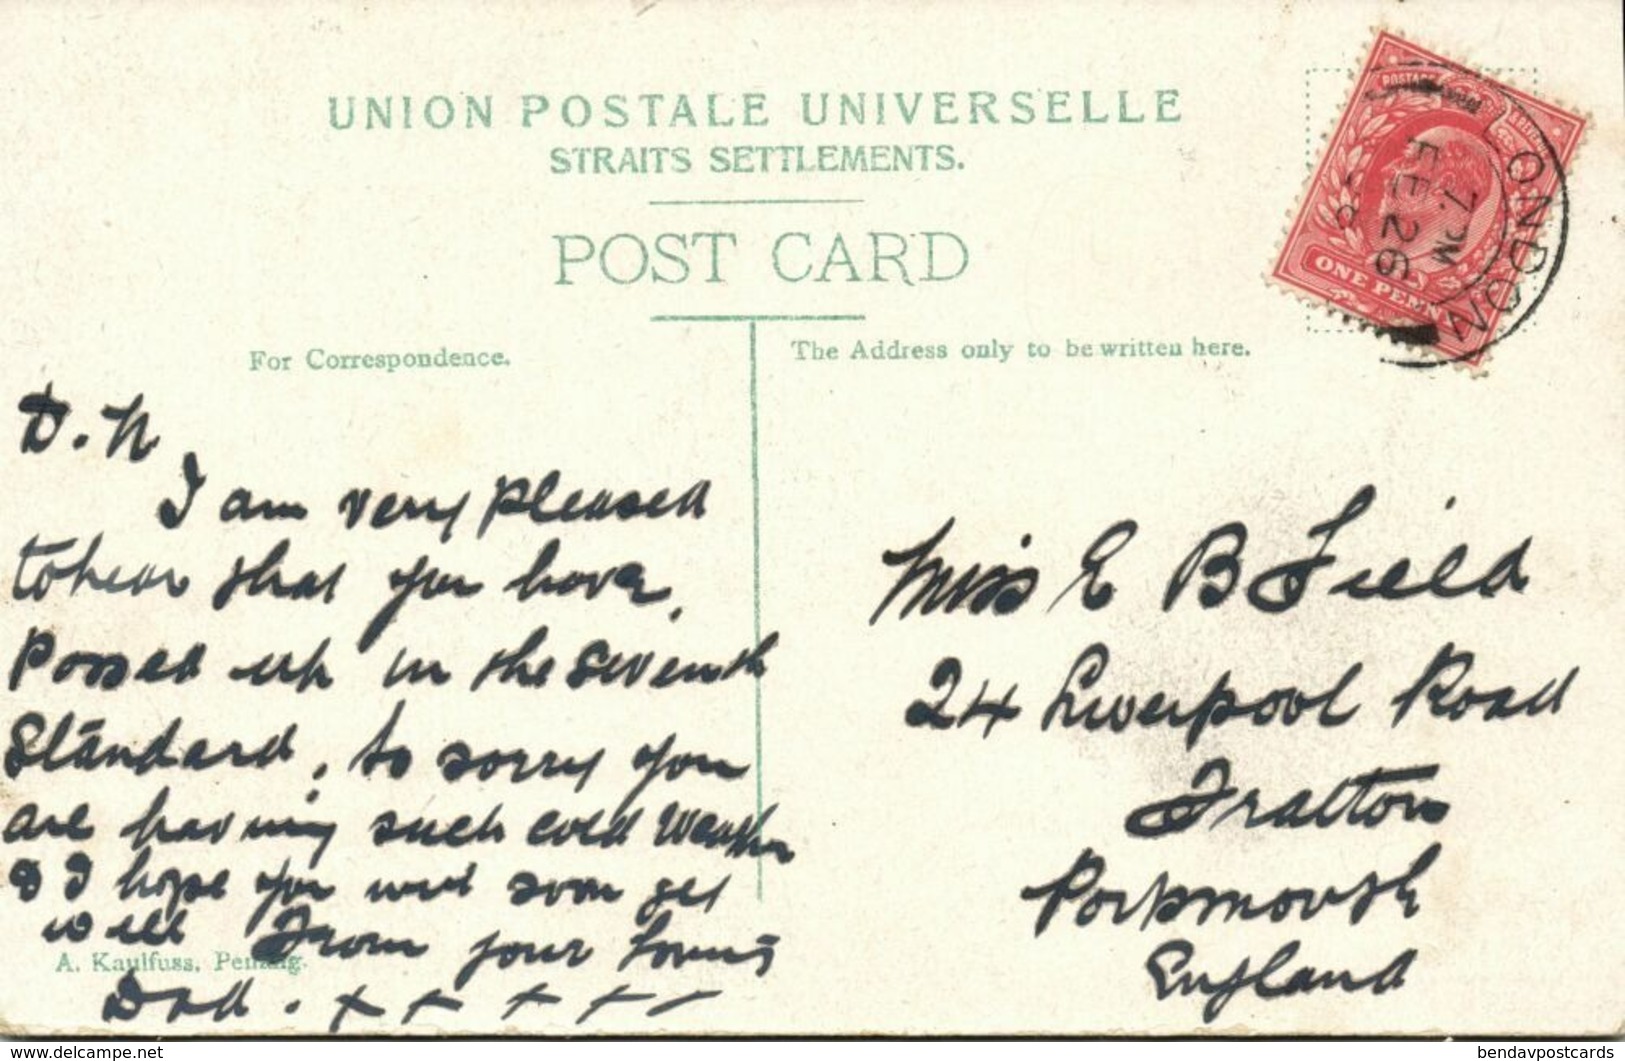 UNION POSTALE UNIVERSELLE
STRAITS SETTLEMENTS.
POST CARD
For Correspondence.
The Address only to be written here.
POSTAGE
ONE PENNY
LONDON
7. PM
FE 26
D. N
I am very pleased
to hear that you have
Passed up in the seventh
Standard, to sorry you
are having such cold weather
& I hope you will soon get
well From your loving
Dad. x x x x x
A. Kaulfuss, Penang.
Miss E B Field
24 Liverpool Road
Fratton
Portsmouth
England
www.delcampe.net
bendavpostcards